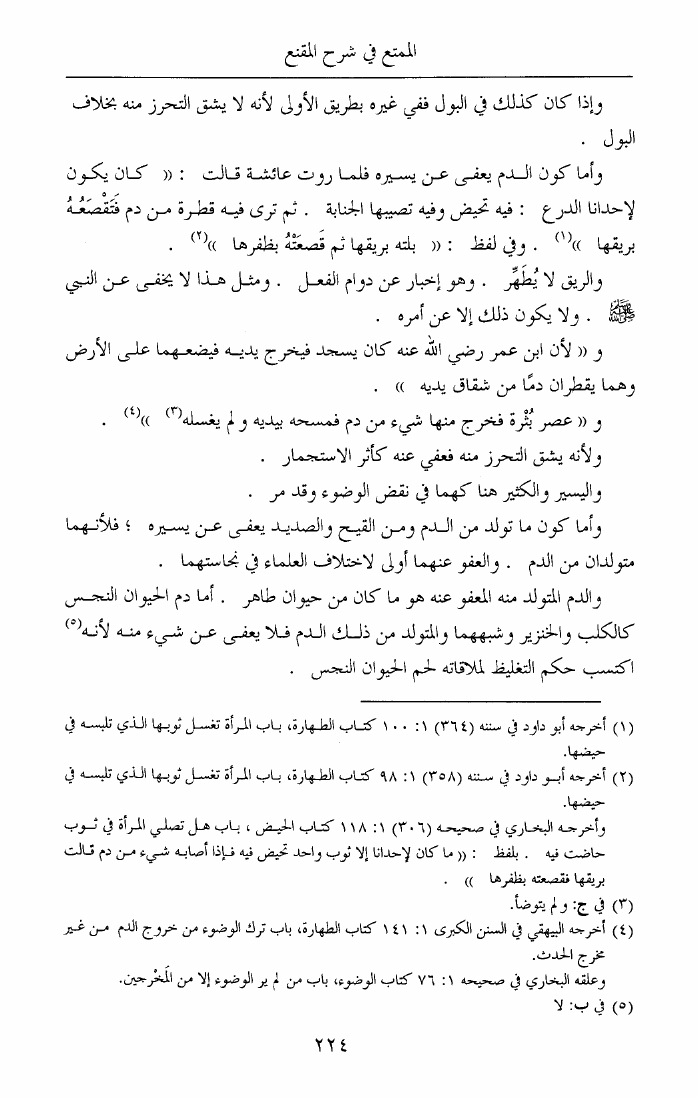 الممتع في شرح المقنع
وإذا كان كذلك في البول ففي غيره بطريق الأولى لأنه لا يشق التحرز منه بخلاف
البول .
وأما كون الدم يعفى عن يسيره فلما روت عائشة قالت : (( كان يكون
لإحدانا الدرع : فيه تحيض وفيه تصيبها الجنابة . ثم ترى فيه قطرة من دم فَتَقْصَعُهُ
بريقها ))(١) . وفي لفظ : (( بلته بريقها ثم قَصعَتْهُ بظفرها ))(٢) .
والريق لا يُطَهِّر . وهو إخبار عن دوام الفعل . ومثل هذا لا يخفى عن النبي
ﷺ . ولا يكون ذلك إلا عن أمره .
و (( لأن ابن عمر رضي الله عنه كان يسجد فيخرج يديه فيضعهما على الأرض
وهما يقطران دمًا من شقاق يديه )) .
و (( عصر بُثْرة فخرج منها شيء من دم فمسحه بيديه و لم يغسله(٣) ))(٤) .
ولأنه يشق التحرز منه فعفي عنه كأثر الاستجمار .
واليسير والكثير هنا كهما في نقض الوضوء وقد مر .
وأما كون ما تولد من الدم ومن القيح والصديد يعفى عن يسيره ؛ فلأنهما
متولدان من الدم . والعفو عنهما أولى لاختلاف العلماء في نجاستهما .
والدم المتولد منه المعفو عنه هو ما كان من حيوان طاهر . أما دم الحيوان النجس
كالكلب والخنزير وشبههما والمتولد من ذلك الدم فلا يعفى عن شيء منه لأنه(٥)
اكتسب حكم التغليظ لملاقاته لحم الحيوان النجس .
(١) أخرجه أبو داود في سننه (٣٦٤) ١: ١٠٠ كتاب الطهارة، باب المرأة تغسل ثوبها الذي تلبسه في
حيضها.
(٢) أخرجه أبو داود في سننه (٣٥٨) ١: ٩٨ كتاب الطهارة، باب المرأة تغسل ثوبها الذي تلبسه في
حيضها.
وأخرجه البخاري في صحيحه (٣٠٦) ١: ١١٨ كتاب الحيض ، باب هل تصلي المرأة في ثوب
حاضت فيه . بلفظ : (( ما كان لإحدانا إلا ثوب واحد تحيض فيه فإذا أصابه شيء من دم قالت
بريقها فقصعته بظفرها )) .
(٣) في ج: و لم يتوضأ.
(٤) أخرجه البيهقي في السنن الكبرى ١: ١٤١ كتاب الطهارة، باب ترك الوضوء من خروج الدم من غير
مخرج الحدث.
وعلقه البخاري في صحيحه ١: ٧٦ كتاب الوضوء، باب من لم ير الوضوء إلا من المَخْرجين.
(٥) في ب: لا
٢٢٤